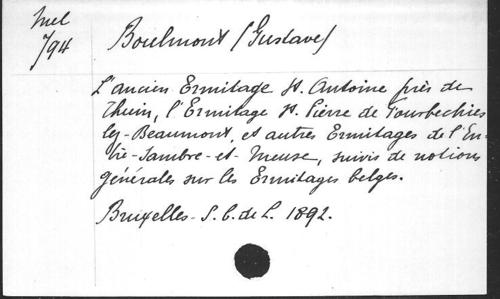 Mel
/94
Boulmont (Gustave)
L'ancien Ermitage St. Antoine près de
Thuin, l'Ermitage St. Pierre de Tourbechies
lez-Beaumont, et autres Ermitages de l'En-
tre-Sambre-et-Meuse, suivis de notions
générales sur les Ermitages belges.
Bruxelles - S. b. de L. 1892.